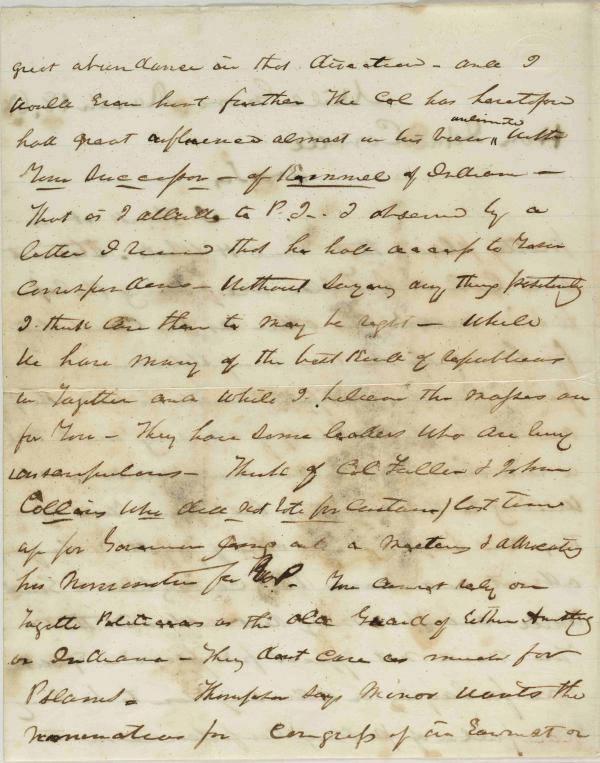 great abundance in that direction - and I
would even hint further The Col has heretofore
had great influence almost in his view unlimited with
Your Successor - of Rummel of Indian -
That is I allude to P. J. I observed by a
letter I received that he had access to Your
Correspondence - Without Saying any thing positively
I think Care then to may be right - While
We have many of the best kind of republicans
in Fayette and While I believe the Masses are
for You - They have some leaders Who are very
unscrupulous - Think of Col Fuller & John
Collins Who did not Vote for Curtin last time
up for Governor going out a meeting & advocating
his Nomination for P. You cannot rely on
Fayette Politicians as the Old Guard of Either
or Indiana - They dont Care as much for
Thompson Says Minor wants the
nomination for Congress if in Earnest or